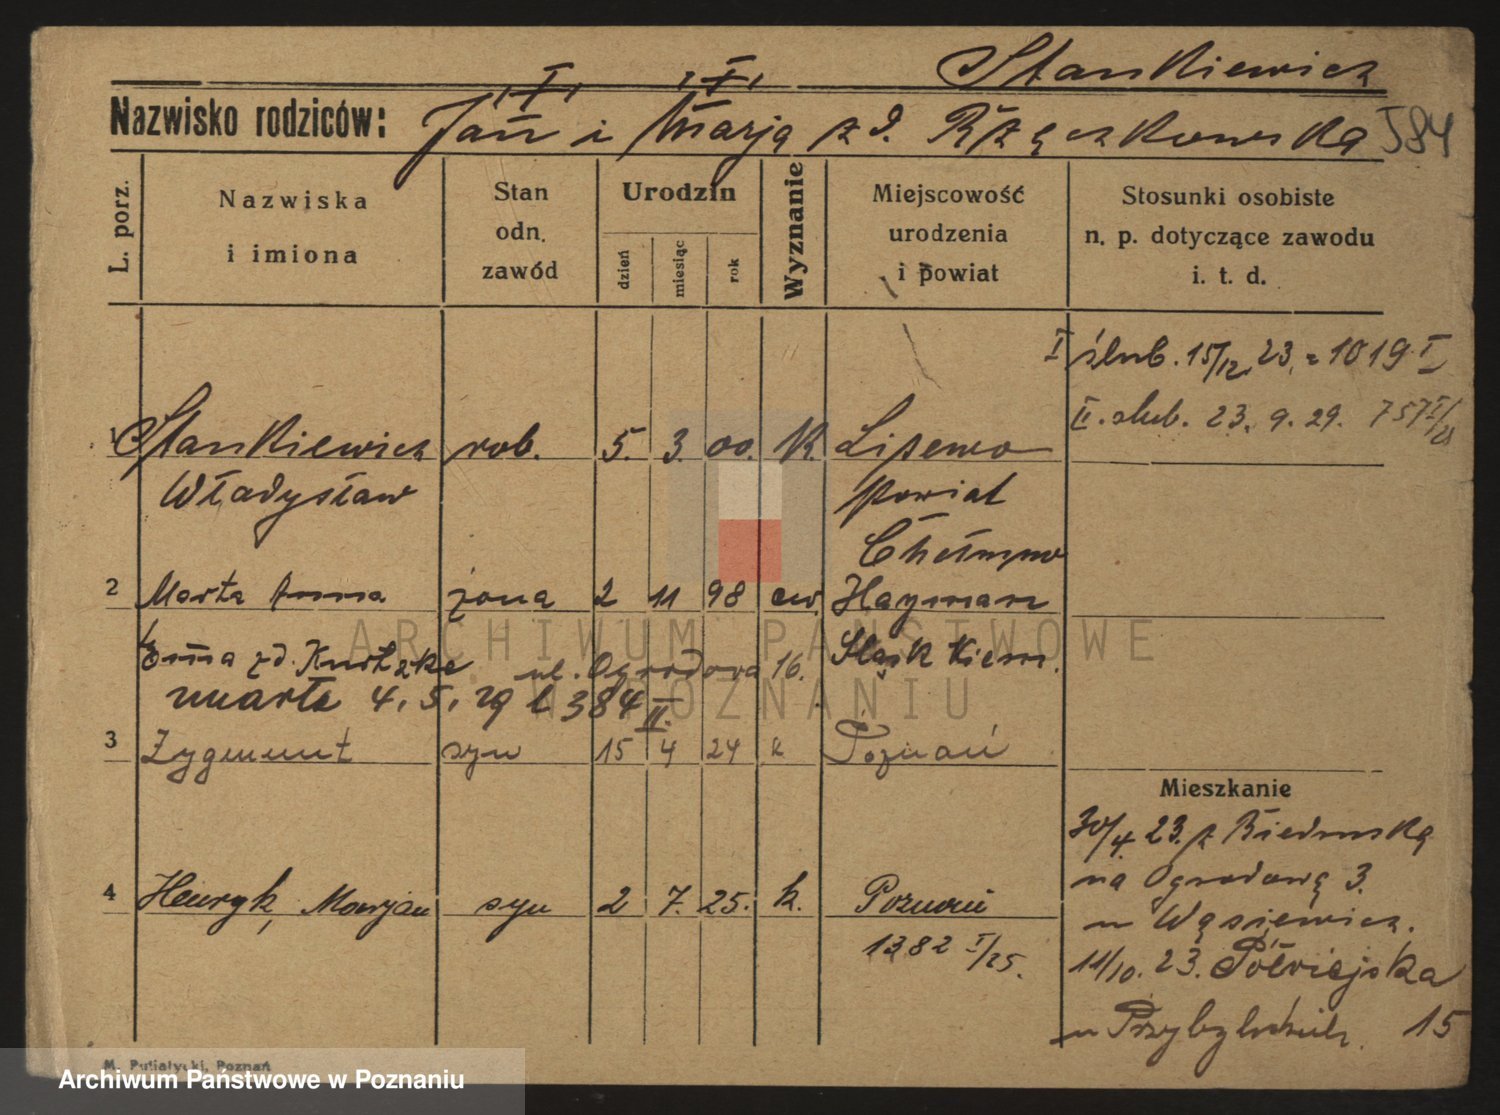 Stankiewicz
Nazwisko rodziców: Jan i Marja zd. Rzączkowska 584
L. porz.
Nazwiska
i imiona
Stan
odn.
zawód
Urodzin
dzień
miesiąc
rok
Wyznanie
Miejscowość
urodzenia
i powiat
Stosunki osobiste
n. p. dotyczące zawodu
i. t. d.
I ślub. 15/12. 23. = 1019 I
II. ślub. 23. 9. 29. 757 I/
1 Stankiewicz rob. 5. 3. 00. K. Lipewo
Władysław powiat
Chełmno
2 Marta Anna żona 2 11 98 ew. Hayman
Emma zd. ul. Ogrodowa 16. Śląsk Niem.
umarła 4. 5. 29 l 384 II.
3 Zygmunt syn 15 4 24 k Poznań
Mieszkanie
30/4. 23. z Biedruska
na Ogrodową 3.
u Wąsiewicz.
4 Henryk, Marjan syn 2 7. 25. k. Poznań
1382 I/25.
11/10. 23. Półwiejska
u 15
M. Putiatycki, Poznań
ARCHIWUM PAŃSTWOWE
W POZNANIU
Archiwum Państwowe w Poznaniu